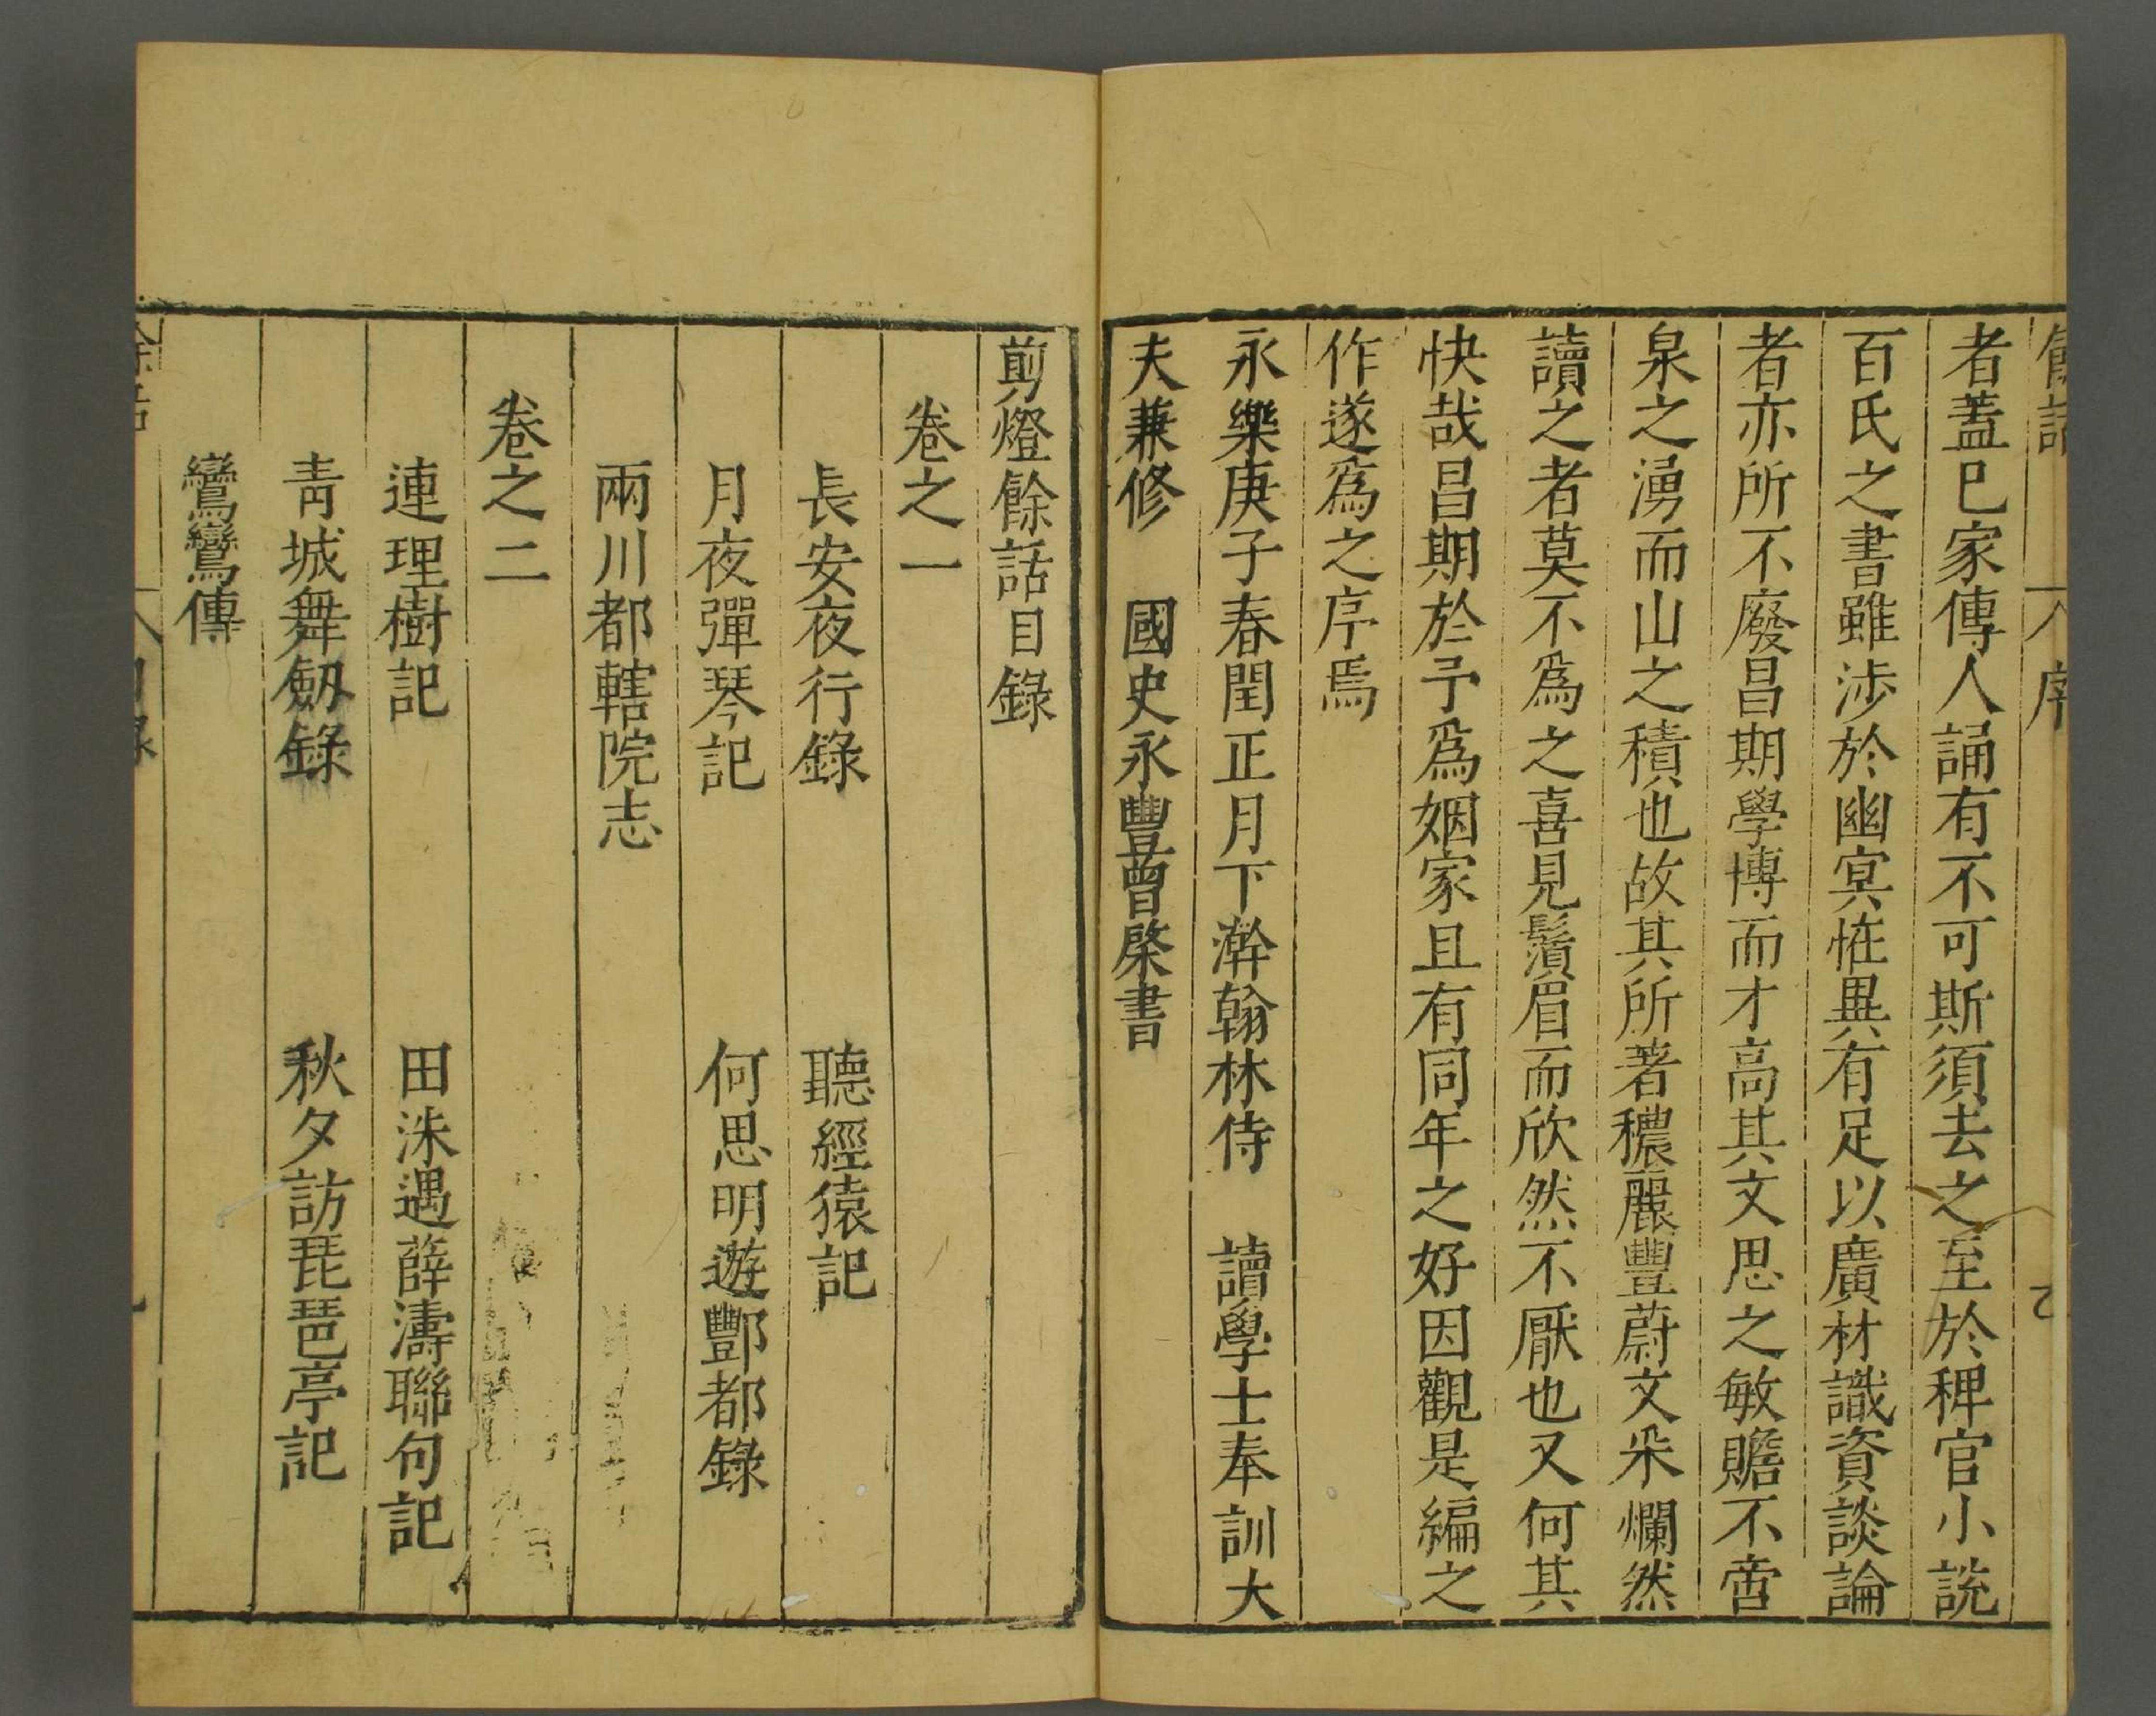 者蓋已家傳人誦有不可斯須去之至於稗官小說
百氏之書雖涉於幽冥恠異有足以廣材識資談論
者亦所不廢昌期學博而才高其文思之敏贍不啻
泉之湧而山之積也故其所著穠麗豐蔚文采爛然
讀之者莫不爲之喜見鬚眉而欣然不厭也又何其
快哉昌期於予爲姻家且有同年之好因觀是編之
作遂爲之序焉
永樂庚子春閏正月下澣翰林侍 讀學士奉訓大
夫兼修 國史永豐曾棨書
剪燈餘話目錄
卷之一
長安夜行錄 聽經猿記
月夜彈琴記 何思明遊酆都錄
兩川都轄院志
卷之二
連理樹記 田洙遇薛濤聯句記
青城舞劒錄 秋夕訪琵琶亭記
鸞鸞傳